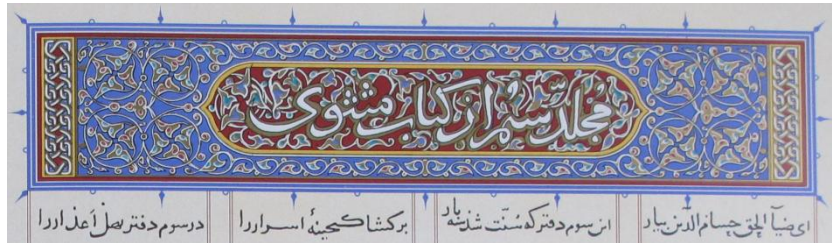 مجلد سوم از کتاب مثنوی
ای ضیاء الحق حسام الدین بیار این سوم دفتر که سُنّت شد سه بار برکشا کنجینهٔ اسرار را در سوم دفتر بهل اعذار را